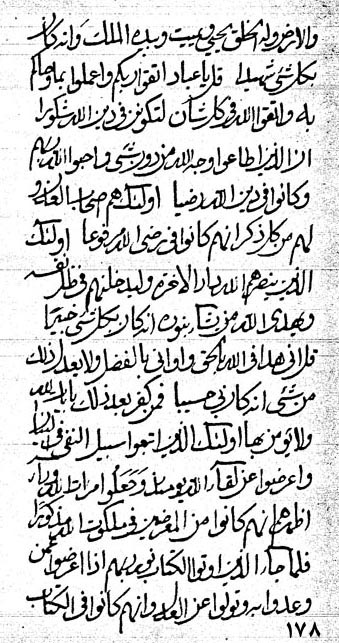 والامر وله الخلق يحيي ويميت وبيده الملك وانه كان
بكل شئ شهيدا قل يا عباد اتقوا ربكم واعملوا بما وصاكم
به واتقوا الله في كل شأن لتكونن في دين الله شكورا
ان الذين اطاعوا وجه الله من دون شئ واحبوا الله ربهم
وكانوا في دين الله رضيا اولئك هم
لهم من كل ذكر انهم كانوا في رضى الله اولئك
الذين ينصرهم الله بدار الاخرة وليدخلنهم في ظل نفسه
ويهدي الله من يشاء بنوره انه كان بكل شئ خبيرا
قل اني هداني الله بالحق واواني بالفضل ولا بعد ذلك
من شئ انه كان بي حسيبا فمن كفر بعد ذلك بايات الله
ولا يؤمن بها اولئك الذين اتبعوا سبيل النفس في
واعرضوا عن لقاء الله يومئذ وجعلوا
انهم كانوا من المعرضين في ملكوت الله
فلما جاء الذين اوتوا الكتاب بربهم اذا اعرضوا عمن
وعدوا به وتولوا عن الله وانهم كانوا في الكتاب
١٧٨